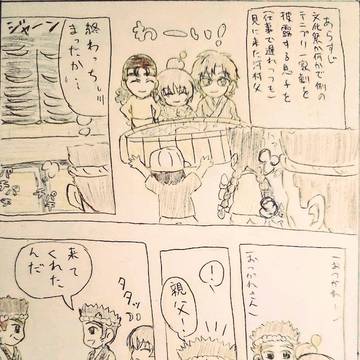 あらすじ
文化祭か何かで例の
テニプリ一気刻を
披露する息子を
(仕事で遅れつつも)
見に来た河村父
わーい!
ジャーン
終わっちぃ
まったか…
(おつかれー!)
(おつかれさん)
!
親父!
タタッ
来て
くれた
んだ